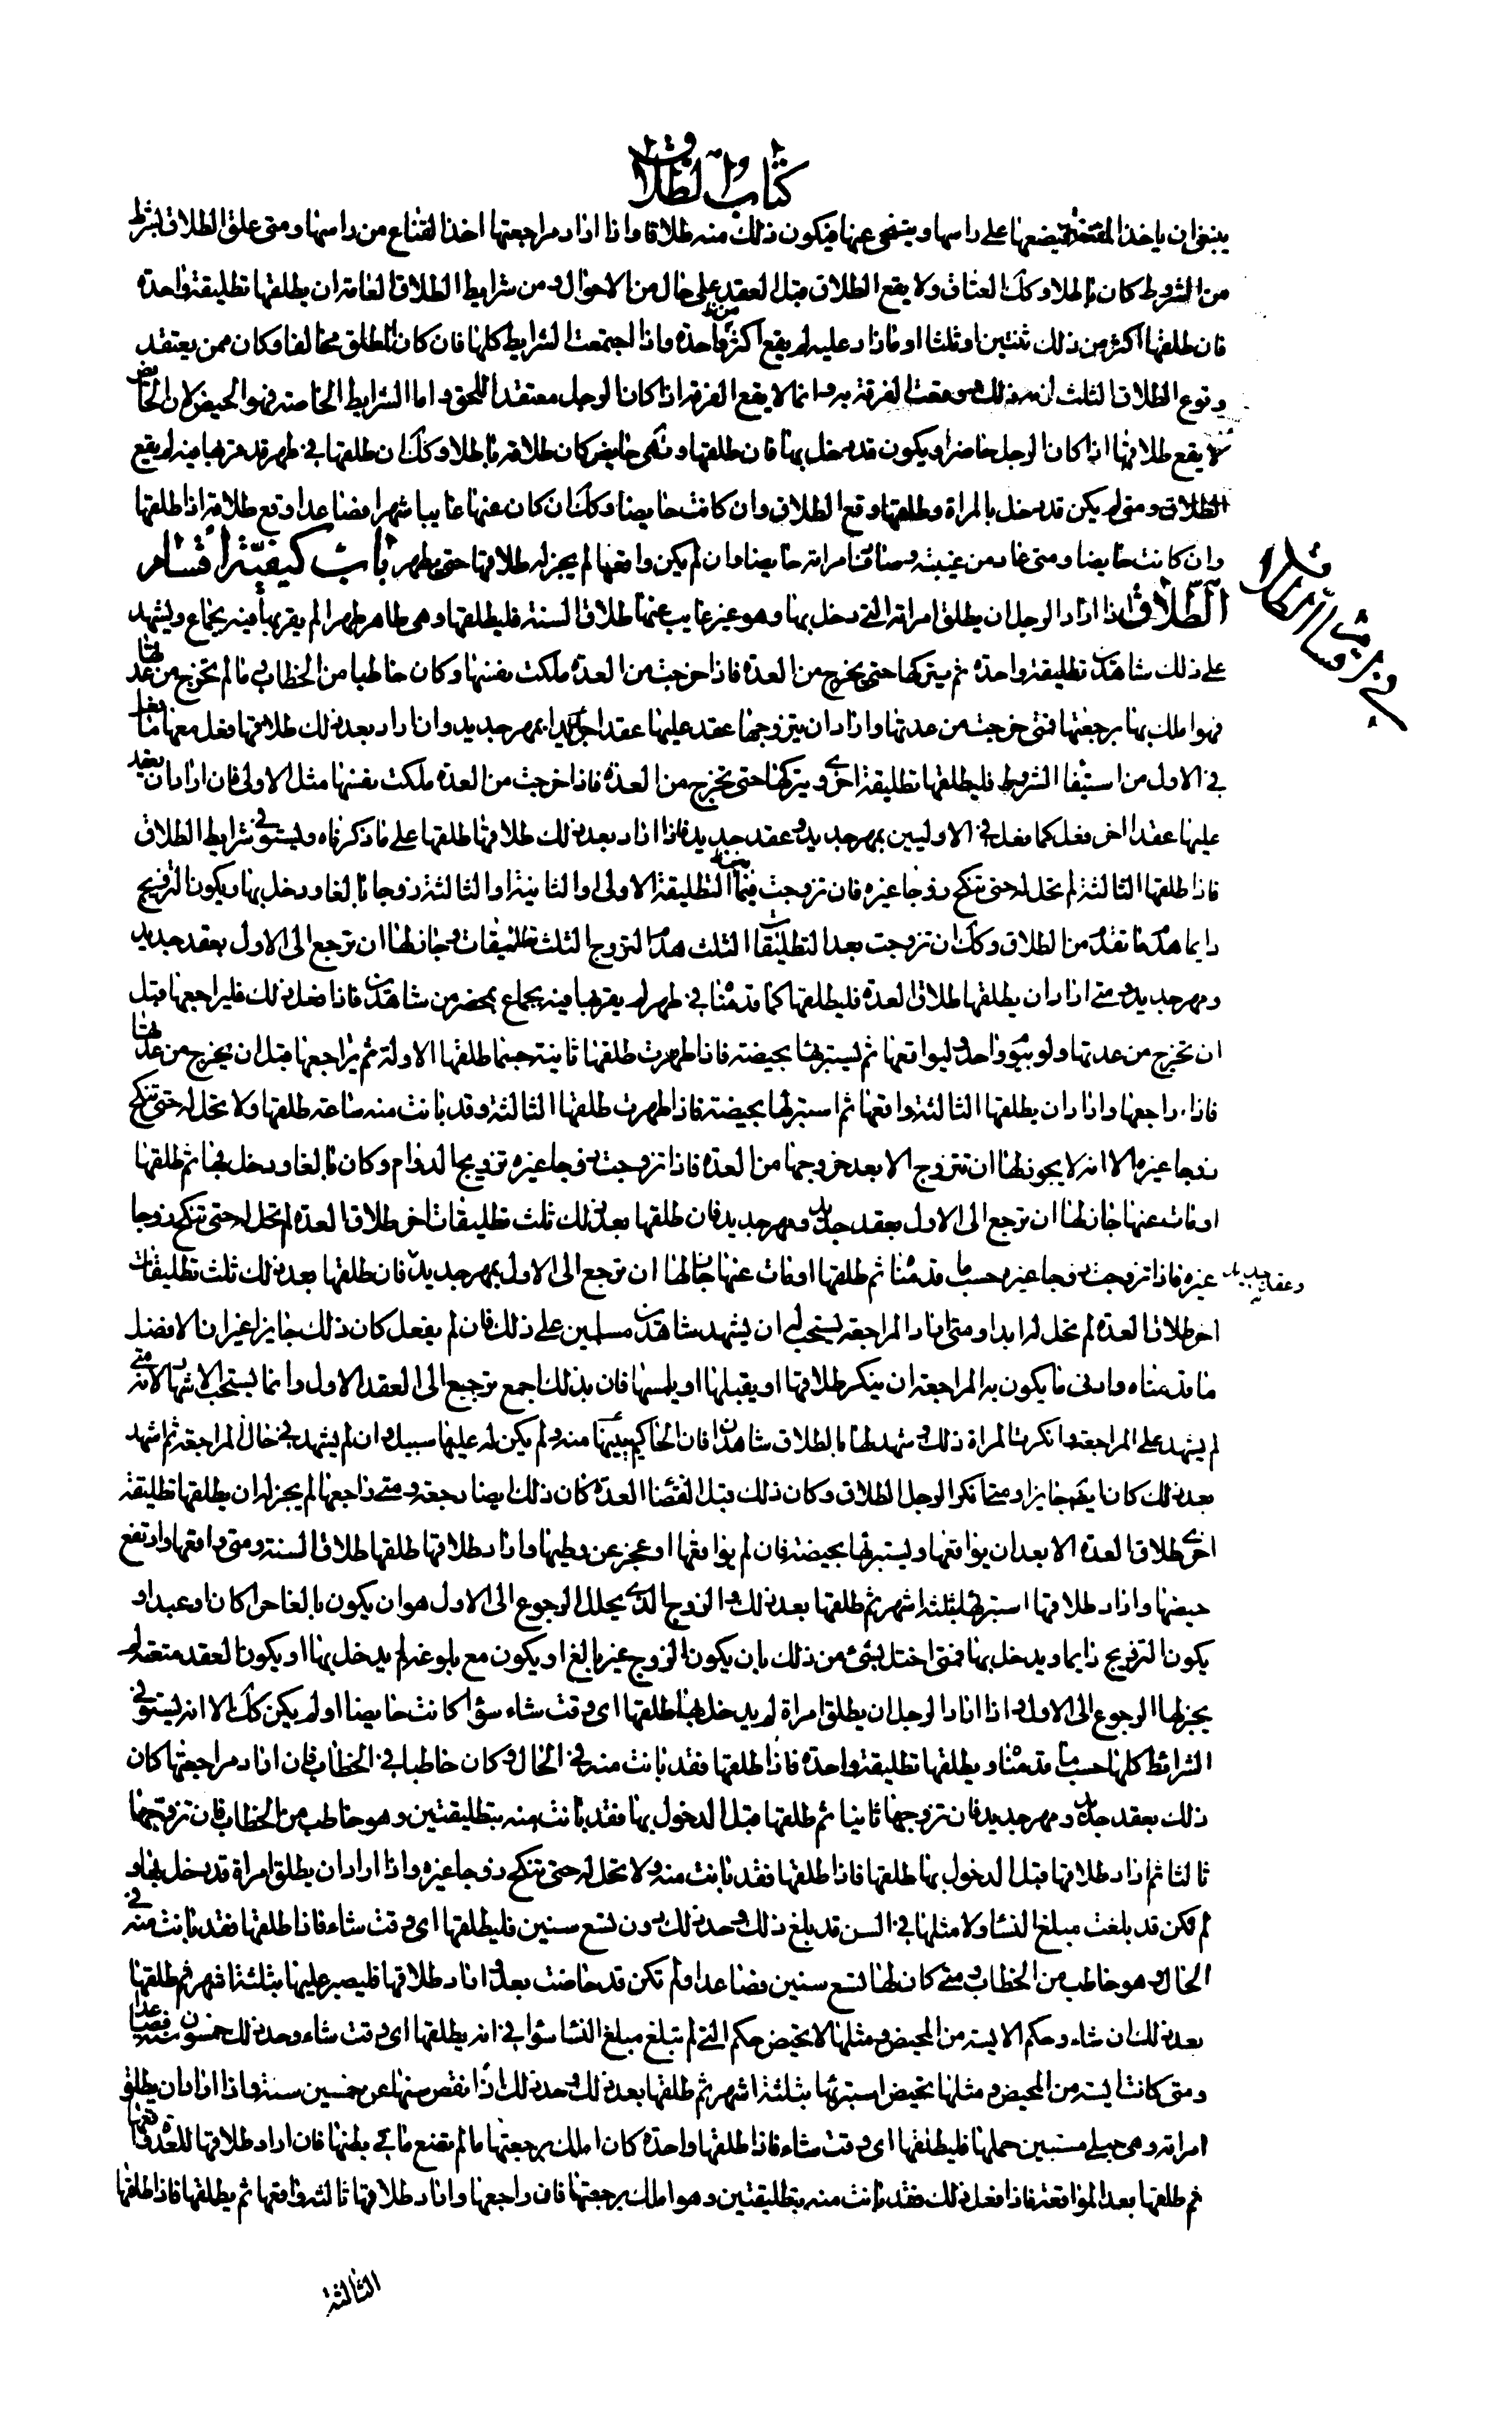 كتاب الطلاق
ينبغى ان ياخذ المقنعة فيضعها على راسها ويتنحى عنها فيكون ذلك منه طلاقا واذا اراد مراجعتها اخذ القناع من راسها ومتى علق الطلاق بشرط
من الشروط كان باطلا وكك العتاق ولا يقع الطلاق قبل العقد على حال من الاحوال ومن شرايط الطلاق العامة ان يطلقها تطليقة واحدة
فان طلقها اكثر من ذلك ثنتين او ثلثا او ما زاد عليه لم يقع اكثر من واحدة واذا اجتمعت الشرايط كلها فان كان المطلق مخالفا وكان ممن يعتقد
وقوع الطلاق الثلث لزمه ذلك ووقعت الفرقة به وانما لا يقع الفرقة اذا كان الرجل معتقدا للحق واما الشرايط الخاصة فهو الحيض لان الحايض
لا يقع طلاقها اذا كان الرجل حاضرا ويكون قد دخل بها فان طلقها وهى حايض كان طلاقه باطلا وكك ان طلقها فى طهر قد قربها فيه لم يقع
الطلاق ومتى لم يكن قد دخل بالمراة وطلقها وقع الطلاق وان كانت حايضا وكك ان كان عنها غايبا شهرا فصاعدا وقع طلاقه اذا طلقها
وان كانت حايضا ومتى عاد من غيبته وصادف امراته حايضا وان لم يكن واقعها لم يجز له طلاقها حتى تطهر باب كيفية اقسام
الطلاق اذا اراد الرجل ان يطلق امراته التى دخل بها وهو غير غايب عنها طلاق السنة فليطلقها وهى طاهر طهرا لم يقربها فيه بجماع ويشهد
على ذلك شاهدين تطليقة واحدة ثم يتركها حتى تخرج من العدة فاذا خرجت من العدة ملكت نفسها وكان خاطبا من الخطاب ما لم تخرج من عدتها
فهو املك بها برجعتها فمتى خرجت من عدتها واراد ان يتزوجها عقد عليها عقدا جديدا بمهر جديد وان اراد بعد ذلك طلاقها فعل معها ما فعل
فى الاول من استيفا الشروط فليطلقها تطليقة اخرى ويتركها حتى تخرج من العدة فاذا خرجت من العدة ملكت نفسها مثل الاولى فان اراد ان يعقد
عليها عقدا اخر فعل كما فعل فى الاوليين بمهر جديد وعقد جديد فاذا اراد بعد ذلك طلاقها طلقها على ما ذكرناه ويستوفى شرايط الطلاق
فاذا طلقها الثالثة لم تحل له حتى تنكح زوجا غيره فان تزوجت فيما بين التطليقة الاولى او الثانية او الثالثة زوجا بالغا ودخل بها ويكون التزويج
دايما هدم ما تقدم من الطلاق وكك ان تزوجت بعد التطليقات الثلث هدم التزوج الثلث تطليقات وجاز لها ان ترجع الى الاول بعقد جديد
ومهر جديد ومتى اراد ان يطلقها طلاق العدة فليطلقها كما قدمنا فى طهر لم يقربها فيه بجماع بمحضر من شاهدين فاذا فعل ذلك فليراجعها قبل
ان تخرج من عدتها ولو بيوم واحد ليواقعها ثم ليستبرئها بحيضة فاذا طهرت طلقها ثانية حسبما طلقها الاولة ثم يراجعها قبل ان تخرج من عدتها
فاذا راجعها واراد ان يطلقها الثالثة واقعها ثم استبرئها بحيضة فاذا طهرت طلقها الثالثة وقد بانت منه ساعة طلقها ولا تحل له حتى تنكح
زوجا غيره الا انه لا يجوز لها ان تتزوج الا بعد خروجها من العدة فاذا تزوجت زوجا غيره تزويجا لدوام وكان بالغا ودخل بها ثم طلقها
او مات عنها جاز لها ان ترجع الى الاول بعقد جديد ومهر جديد فان طلقها بعد ذلك ثلث تطليقات اخر طلاق العدة لم تحل له حتى تنكح زوجا
غيره فاذا تزوجت زوجا غيره حسب ما قدمنا ثم طلقها او مات عنها جاز لها ان ترجع الى الاول بمهر جديد فان طلقها بعد ذلك ثلث تطليقات
وعقد جديد
اخر طلاق العدة لم تحل له ابدا ومتى اراد المراجعة يستحب له ان يشهد شاهدين مسلمين على ذلك فان لم يفعل كان ذلك جايزا غير ان الافضل
ما قدمناه وادنى ما يكون به المراجعة ان ينكر طلاقها او يقبلها او يلمسها فان بذلك اجمع ترجع الى العقد الاول وانما يستحب الاشهاد لانه متى
لم يشهد على المراجعة وانكرت المراة ذلك وشهد لها بالطلاق شاهدان فان الحاكم يبينها منه ولم يكن له عليها سبيل وان لم يشهد فى حال المراجعة ثم اشهد
بعد ذلك كان ايضا جايزا ومتى انكر الرجل الطلاق وكان ذلك قبل انقضا العدة كان ذلك ايضا رجعة ومتى راجعها لم يجز له ان يطلقها تطليقة
اخرى طلاق العدة الا بعد ان يواقعها ويستبرئها بحيضة فان لم يواقعها او عجز عن وطيها واراد طلاقها طلقها طلاق السنة ومتى واقعها وارتفع
حيضها واراد طلاقها استبرئها بثلثة اشهر ثم طلقها بعد ذلك والزوج الذى يحلل الرجوع الى الاول هو ان يكون بالغا حرا كان او عبدا و
يكون التزويج دايما ويدخل بها فمتى اختل شىء من ذلك بان يكون الزوج غير بالغ او يكون مع بلوغه لم يدخل بها او يكون العقد متعة لم
يجز لها الرجوع الى الاول واذا اراد الرجل ان يطلق امراة لم يدخل بها طلقها اى وقت شاء سوا كانت حايضا او لم يكن كك الا انه يستوفى
الشرائط كلها حسب ما قدمنا ويطلقها تطليقة واحدة فاذا طلقها فقد بانت منه فى الحال وكان خاطبا فى الخطاب فان اراد مراجعتها كان
ذلك بعقد جديد ومهر جديد فان تزوجها ثانيا ثم طلقها قبل الدخول بها فقد بانت منه بتطليقتين وهو خاطب من الخطاب فان تزوجها
ثالثا ثم اراد طلاقها قبل الدخول بها طلقها فاذا طلقها فقد بانت منه ولا تحل له حتى تنكح زوجا غيره واذا اراد ان يطلق امراة قد دخل بها و
لم تكن قد بلغت مبلغ النسا ولا مثلها فى السن قد بلغ ذلك وحد ذلك دون تسع سنين فليطلقها اى وقت شاء فاذا طلقها فقد بانت منه فى
الحال وهو خاطب من الخطاب ومتى كان لها تسع سنين فصاعدا ولم تكن قد حاضت بعد واراد طلاقها فليصبر عليها بثلثة اشهر ثم طلقها
بعد ذلك ان شاء وحكم الايسة من المحيض ومثلها لا تحيض حكم التى لم تبلغ مبلغ النسا سوا فى انه يطلقها اى وقت شاء وحد ذلك خمسون سنة فصاعدا
ومتى كانت ايسة من المحيض ومثلها تحيض استبرئها بثلثة اشهر ثم طلقها بعد ذلك وحد ذلك اذا نقص سنها عن خمسين سنة واذا اراد ان يطلق
امراته وهى حبلى مستبين حملها فليطلقها اى وقت شاء فاذا طلقها واحدة كان املك برجعتها ما لم تضع ما فى بطنها فان اراد طلاقها للعدة واقعها
ثم طلقها بعد المواقعة فاذا فعل ذلك فقد بانت منه بتطليقتين وهو املك برجعتها فان راجعها واراد طلاقها ثالثة واقعها ثم يطلقها فاذا طلقها
الثالثة